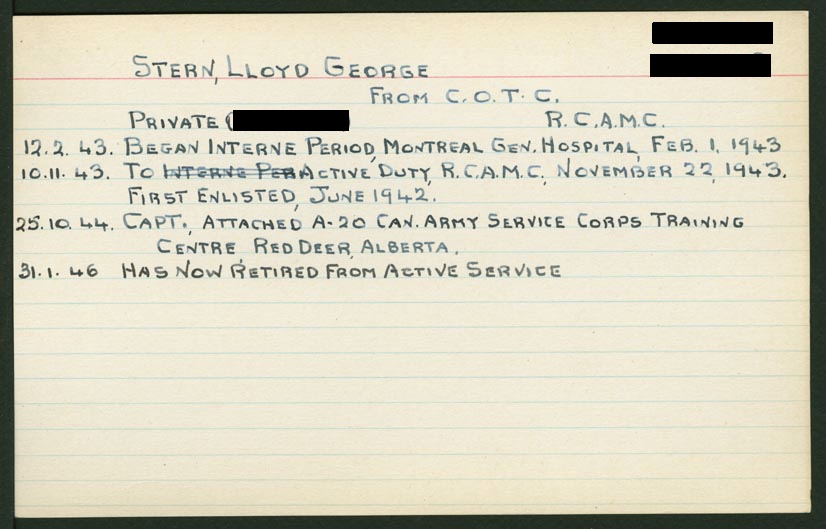 STERN, LLOYD GEORGE
FROM C.O.T.C.
PRIVATE ( ) R.C.A.M.C.
12.2.43. BEGAN INTERNE PERIOD, MONTREAL GEN. HOSPITAL, FEB. 1, 1943
10.11.43. TO INTERNE PER ACTIVE DUTY, R.C.A.M.C., NOVEMBER 22, 1943.
FIRST ENLISTED, JUNE 1942.
25.10.44. CAPT., ATTACHED A-20 CAN. ARMY SERVICE CORPS TRAINING
CENTRE, RED DEER, ALBERTA.
31.1.46 HAS NOW RETIRED FROM ACTIVE SERVICE